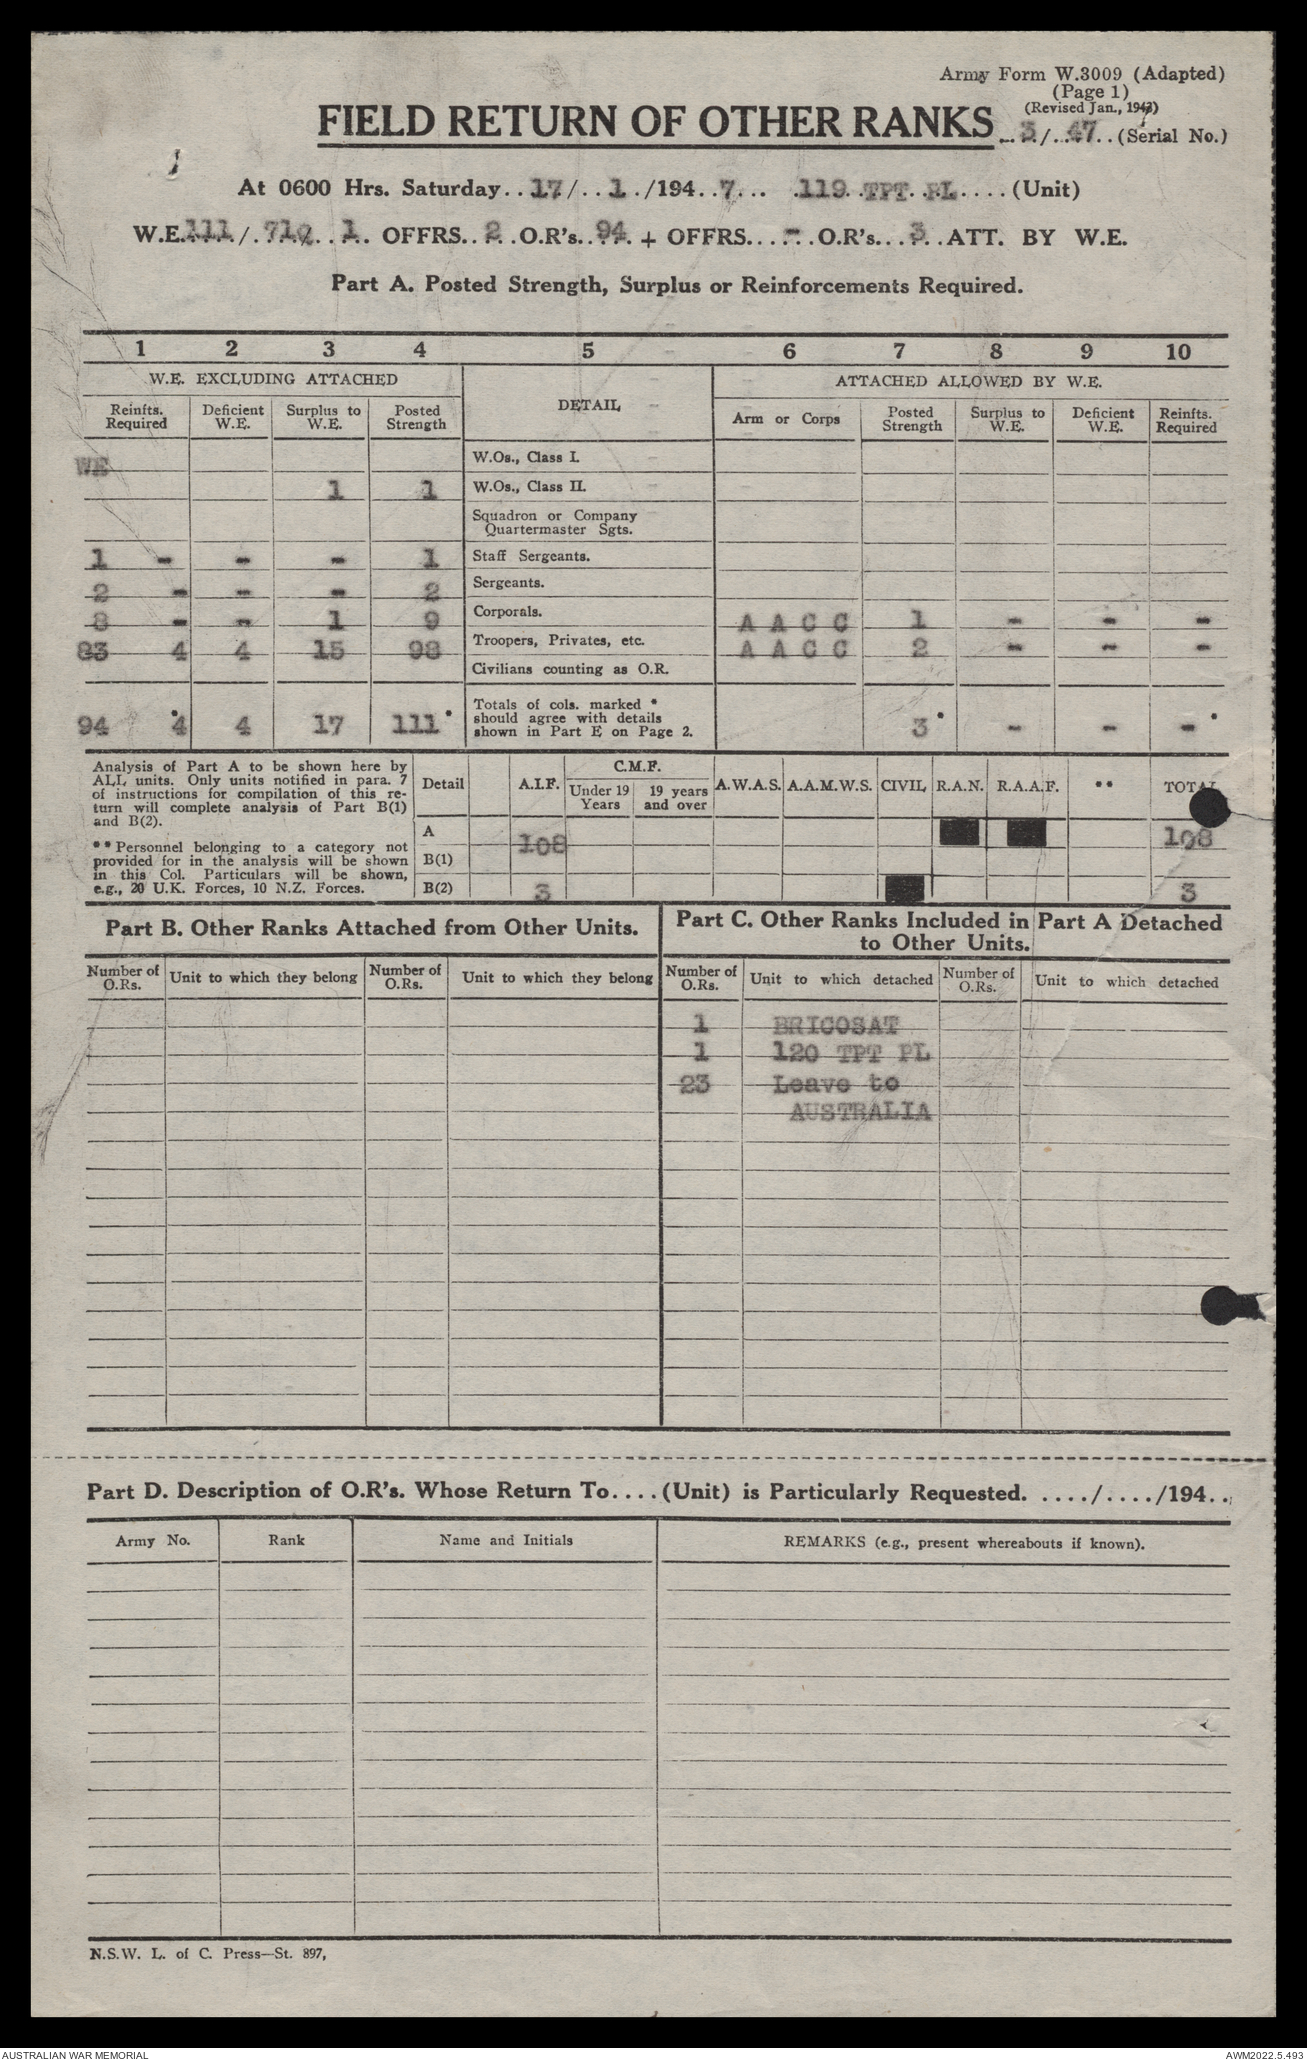 Army Form W.3009 (Adapted)
(Page 1)
(Revised Jan., 1943)
FIELD RETURN OF OTHER RANKS ..3/..47..(Serial No.)
At 0600 Hrs. Saturday..17/..1./194..7... .119 TPT PL....(Unit)
W.E.111./.71q..1.. OFFRS..2..O.R's..94. + OFFRS....-..O.R's...3..ATT. BY W.E.
Part A. Posted Strength, Surplus or Reinforcements Required.
1 2 3 4 5 6 7 8 9 10
W.E. EXCLUDING ATTACHED DETAIL ATTACHED ALLOWED BY W.E.
Reinfts. Required Deficient W.E. Surplus to W.E. Posted Strength Arm or Corps Posted Strength Surplus to W.E. Deficient W.E. Reinfts. Required
WE W.Os., Class I.
1 1 W.Os., Class II.
Squadron or Company
Quartermaster Sgts.
1 - - - 1 Staff Sergeants.
2 - - - 2 Sergeants.
8 - - 1 9 Corporals. A A C C 1 - - -
83 4 4 15 98 Troopers, Privates, etc. A A C C 2 - - -
Civilians counting as O.R.
Totals of cols. marked *
should agree with details
94 4* 4 17 111* shown in Part E on Page 2. 3* - - -*
Analysis of Part A to be shown here by
ALL units. Only units notified in para. 7
of instructions for compilation of this re-
turn will complete analysis of Part B(1)
and B(2).
** Personnel belonging to a category not
provided for in the analysis will be shown
in this Col. Particulars will be shown,
e.g., 20 U.K. Forces, 10 N.Z. Forces.
Detail A.I.F. C.M.F. Under 19 Years 19 years and over A.W.A.S. A.A.M.W.S. CIVIL R.A.N. R.A.A.F. ** TOTAL
A 108 108
B(1)
B(2) 3 3
Part B. Other Ranks Attached from Other Units.
Number of O.Rs. Unit to which they belong Number of O.Rs. Unit to which they belong
Part C. Other Ranks Included in Part A Detached
to Other Units.
Number of O.Rs. Unit to which detached Number of O.Rs. Unit to which detached
1 BRICOSAT
1 120 TPT PL
23 Leave to
AUSTRALIA
Part D. Description of O.R's. Whose Return To....(Unit) is Particularly Requested. ..../..../194..
Army No. Rank Name and Initials REMARKS (e.g., present whereabouts if known).
N.S.W. L. of C. Press—St. 897,
AUSTRALIAN WAR MEMORIAL AWM2022.5.493